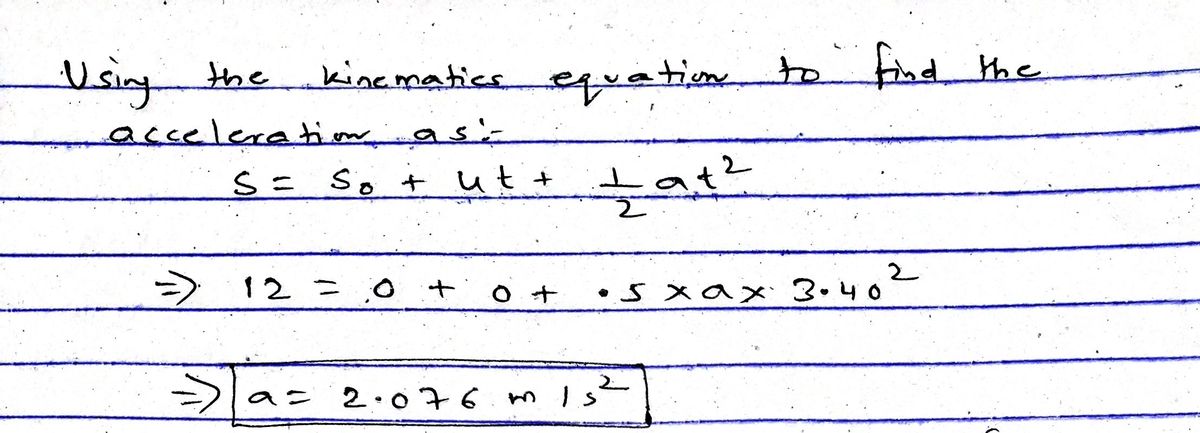 Using the kinematics equation to find the
acceleration as:-
S = S₀ + ut + 1/2 at²
⇒ 12 = 0 + 0 + .5 × a × 3.40²
⇒ a = 2.076 m/s²